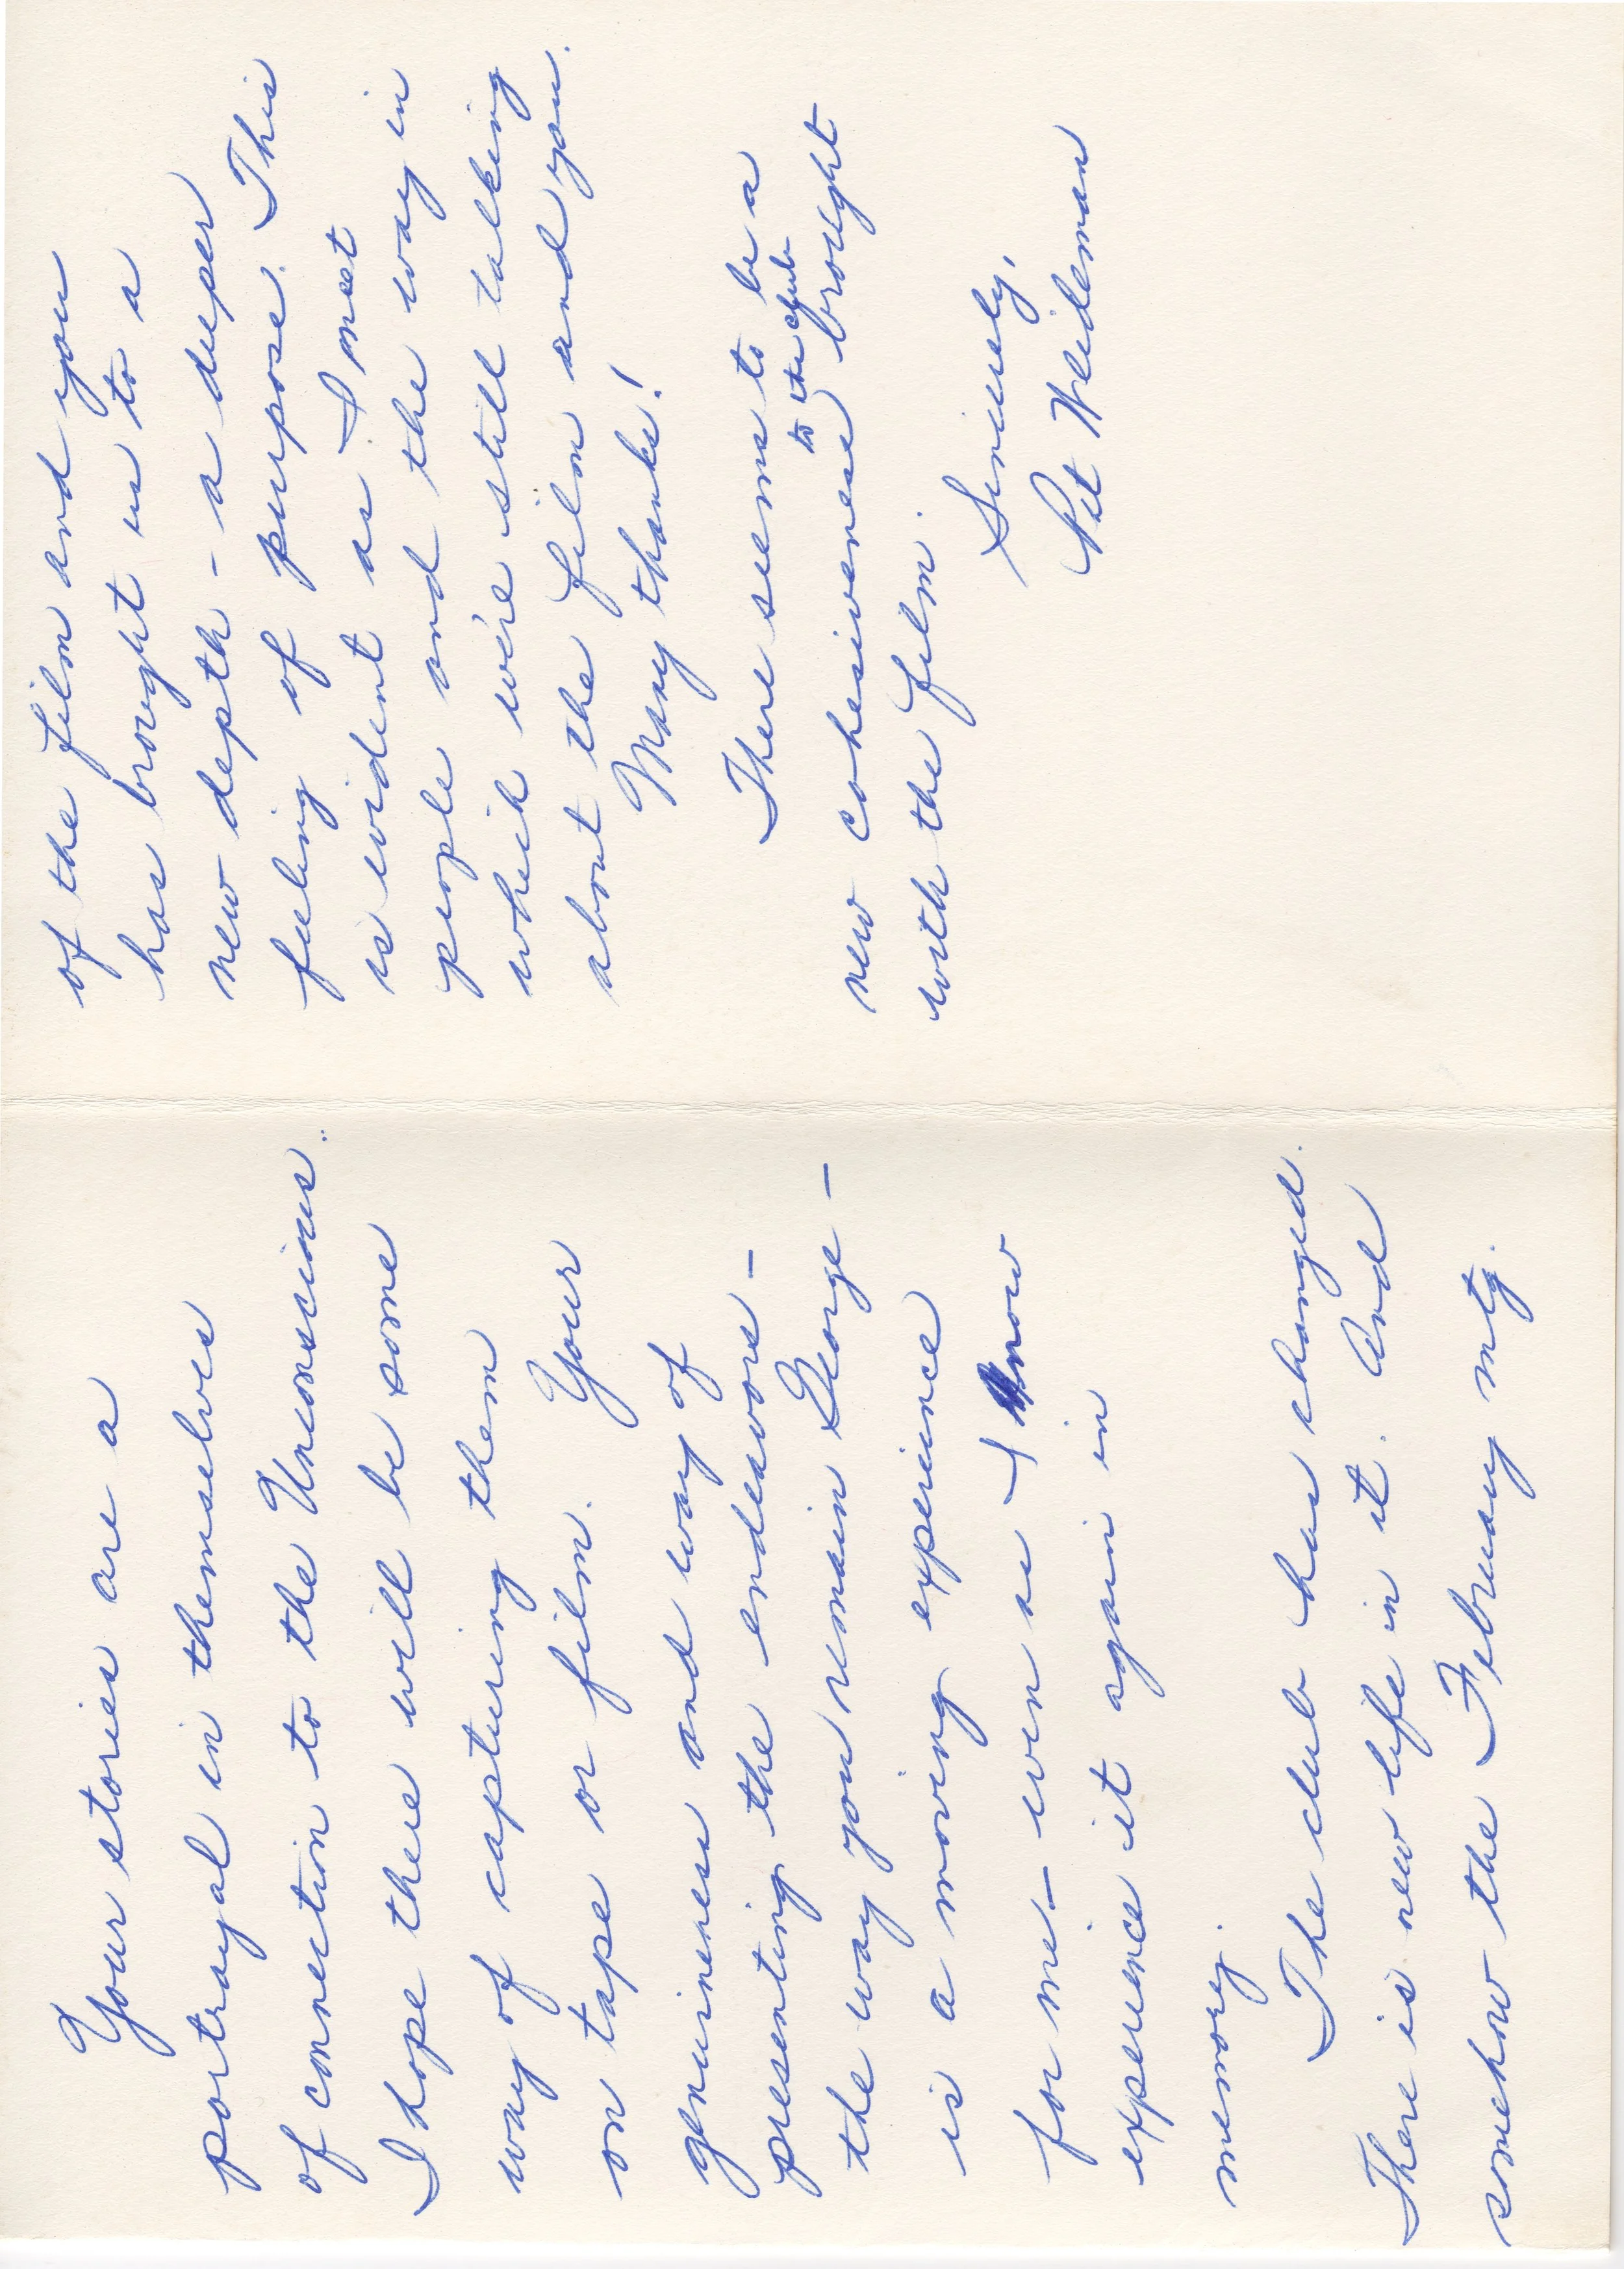 Your stories are a
portrayal in themselves
of connection to the Unconscious.
I hope there will be some
way of capturing them
on tape or film. Your
genuineness and way of
presenting the endeavors -
the way you remain George -
is a moving experience
for me - even as I now
experience it again in
memory.
The club has changed.
There is new life in it. And
somehow the February mtg.
of the film and you
has brought us to a
new depth - a deeper
feeling of purpose. This
is evident as I meet
people and the way in
which we're still talking
about the film and you.
Many thanks!
There seems to be a
new cohesiveness to the club brought
with the film.
Sincerely,
Pat